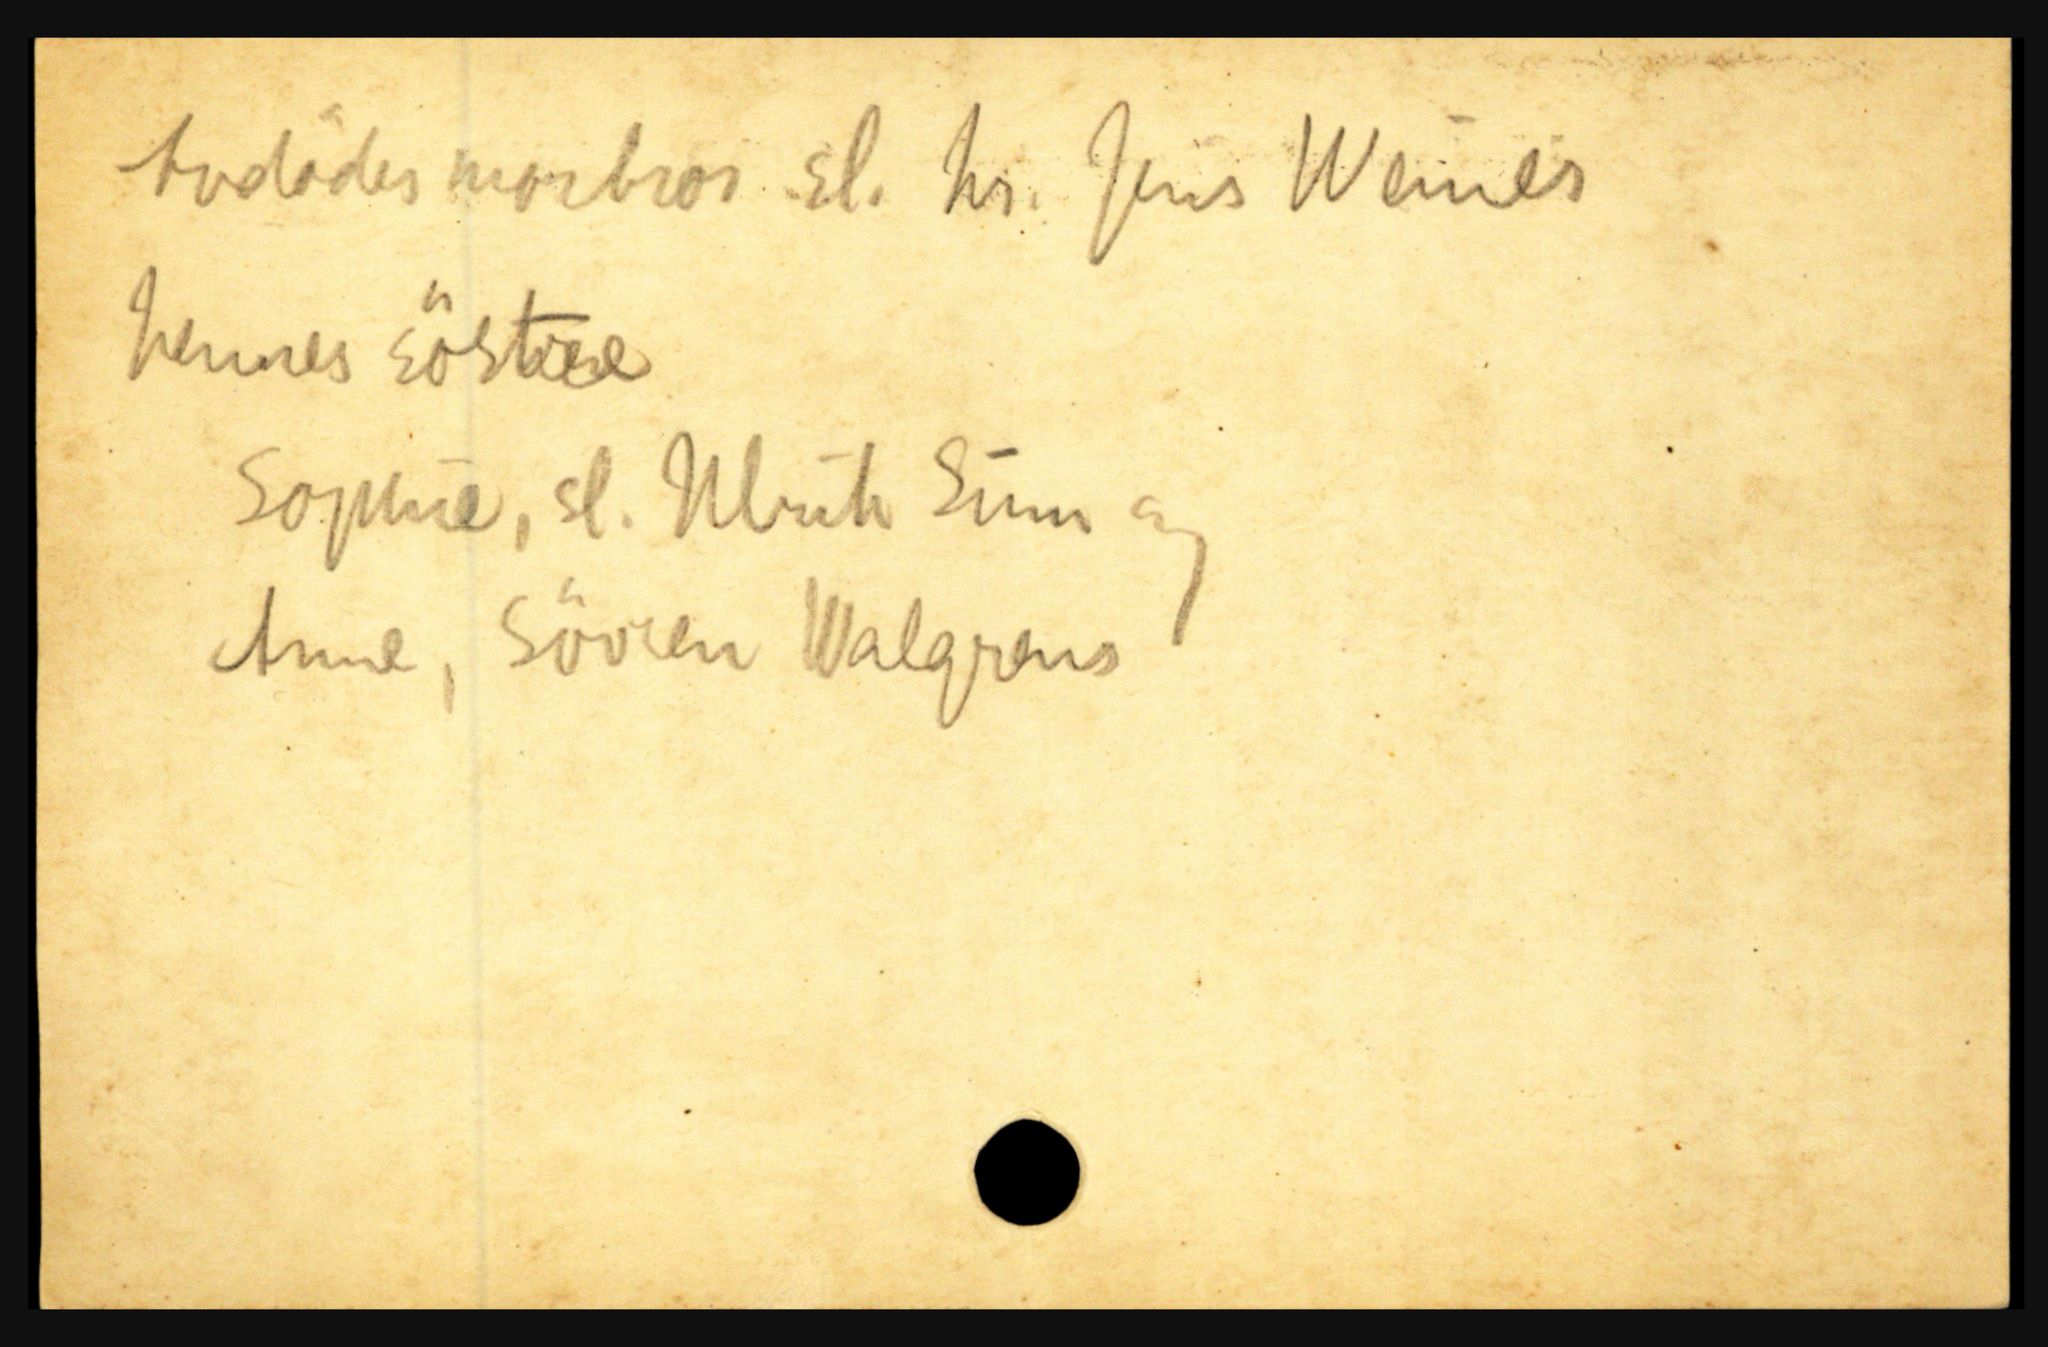 Avdödes morbror sl. hr. Jens Weiners
hennes söstre
Sophie, sl. Ulrich Sinn og
Anne, Sövren Walgrens